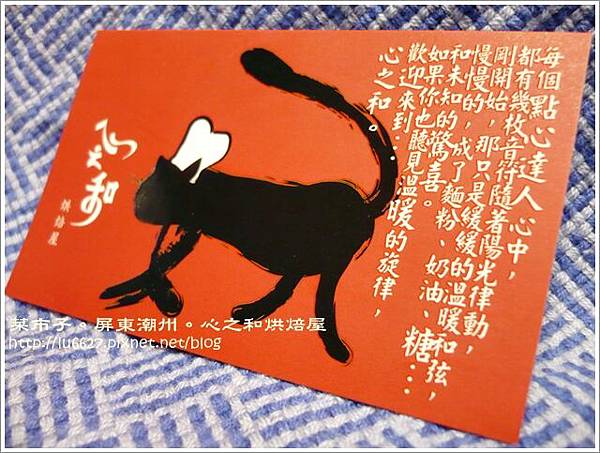 每個點心達人心中，
都有幾枚音符隨著陽光律動，
剛開始，那只是緩緩的溫暖和弦，
慢慢的，成了麵粉、奶油、糖…
和未知的驚喜。
如果你也聽見溫暖的旋律，
歡迎來到…
心之和。
心之和
烘焙屋
菜市子。屏東潮州。心之和烘焙屋
http://lu6627.pixnet.net/blog